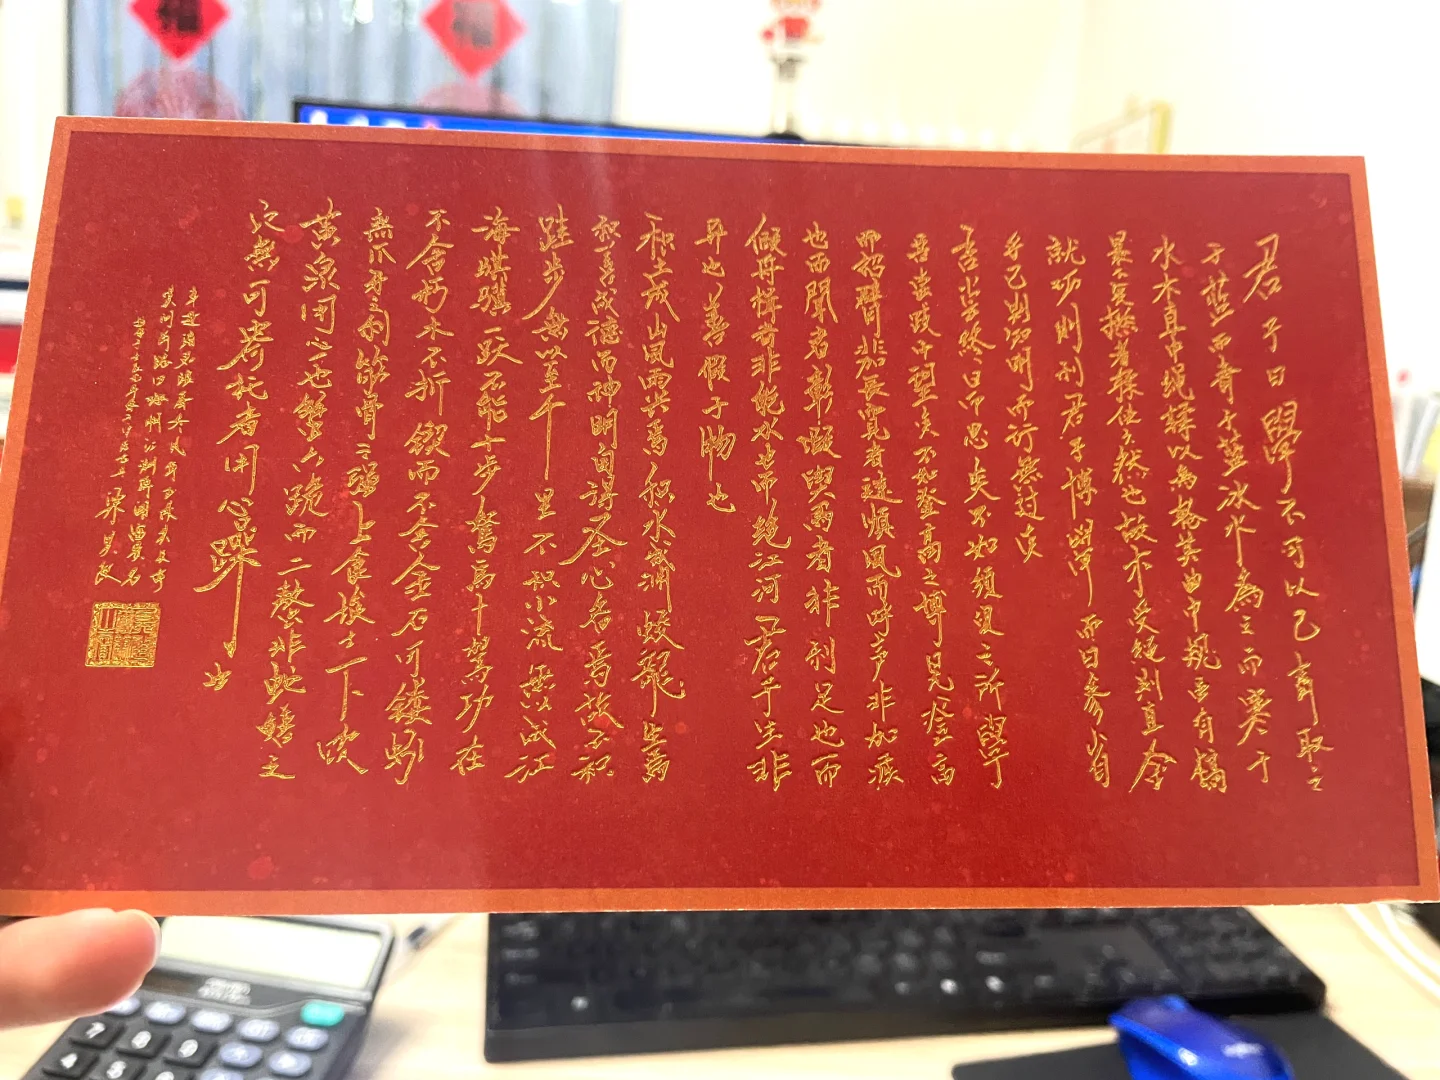 福
福
君子曰學不可以已青取之
于藍而青于藍冰水為之而寒于
水木直中绳輮以為輪其曲中規虽有槁
暴不复挺者輮使之然也故木受绳则直金
就砺则利君子博學而日参省
乎己则知明而行無过矣
吾尝终日而思矣不如须臾之所學
吾尝跂而望矣不如登高之博見登高
而招臂非加長而見者遠順風而呼声非加疾
也而聞者彰假輿馬者非利足也而
假舟楫者非能水也而绝江河君子生非
异也善假于物也
积土成山風雨興焉积水成渊蛟龍生焉
积善成德而神明自得圣心者焉故不积
跬步無以至千里不积小流無以成江
海骐骥一跃不能十步驽馬十驾功在
不舍朽木不折锲而不舍金石可镂蚓
無爪牙之利筋骨之强上食埃土下飲
黄泉用心一也蟹六跪而二螯非蛇鳝之
穴無可寄托者用心躁也
7 8 9
4 5 6